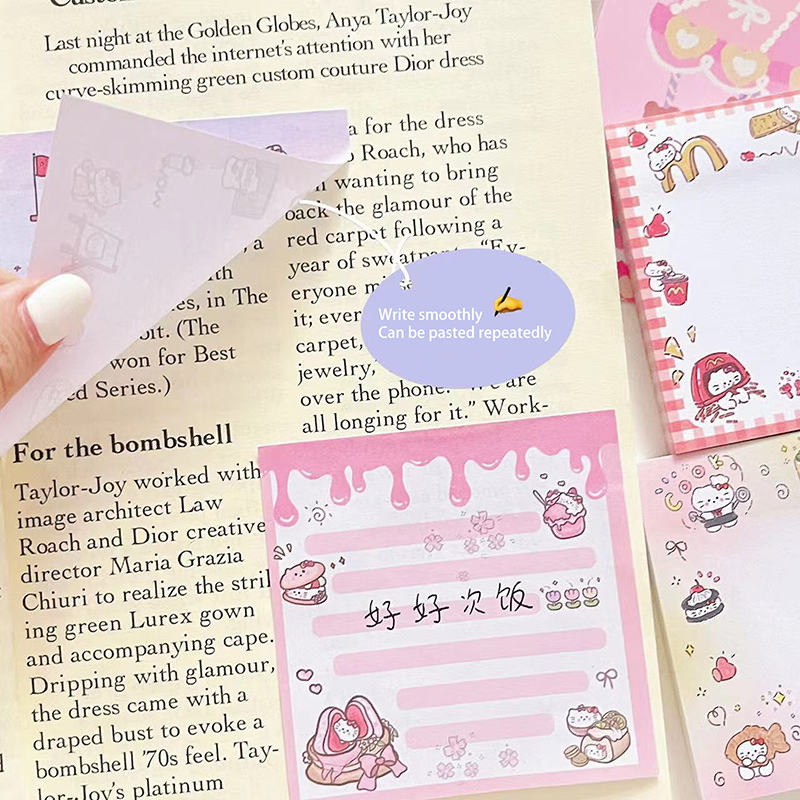 Last night at the Golden Globes, Anya Taylor-Joy
commanded the internet's attention with her
curve-skimming green custom couture Dior dress
, a
es, in The
(The
won for Best
Series.)
For the bombshell
Taylor-Joy worked with
image architect Law
Roach and Dior creative
director Maria Grazia
Chiuri to realize the
ing green Lurex gown
and accompanying cape.
Dripping with glamour,
the dress came with a
draped bust to evoke a
bombshell '70s feel. Tay-
lor-Joy's platinum
a for the dress
Roach, who has
wanting to bring
back the glamour of the
red carpet following a
year of sweatpants. “Ev-
eryone
it; ever
carpet,
jewelry,
over the phone. “We are
all longing for it.” Work-
Write smoothly
Can be pasted repeatedly
好好次饭